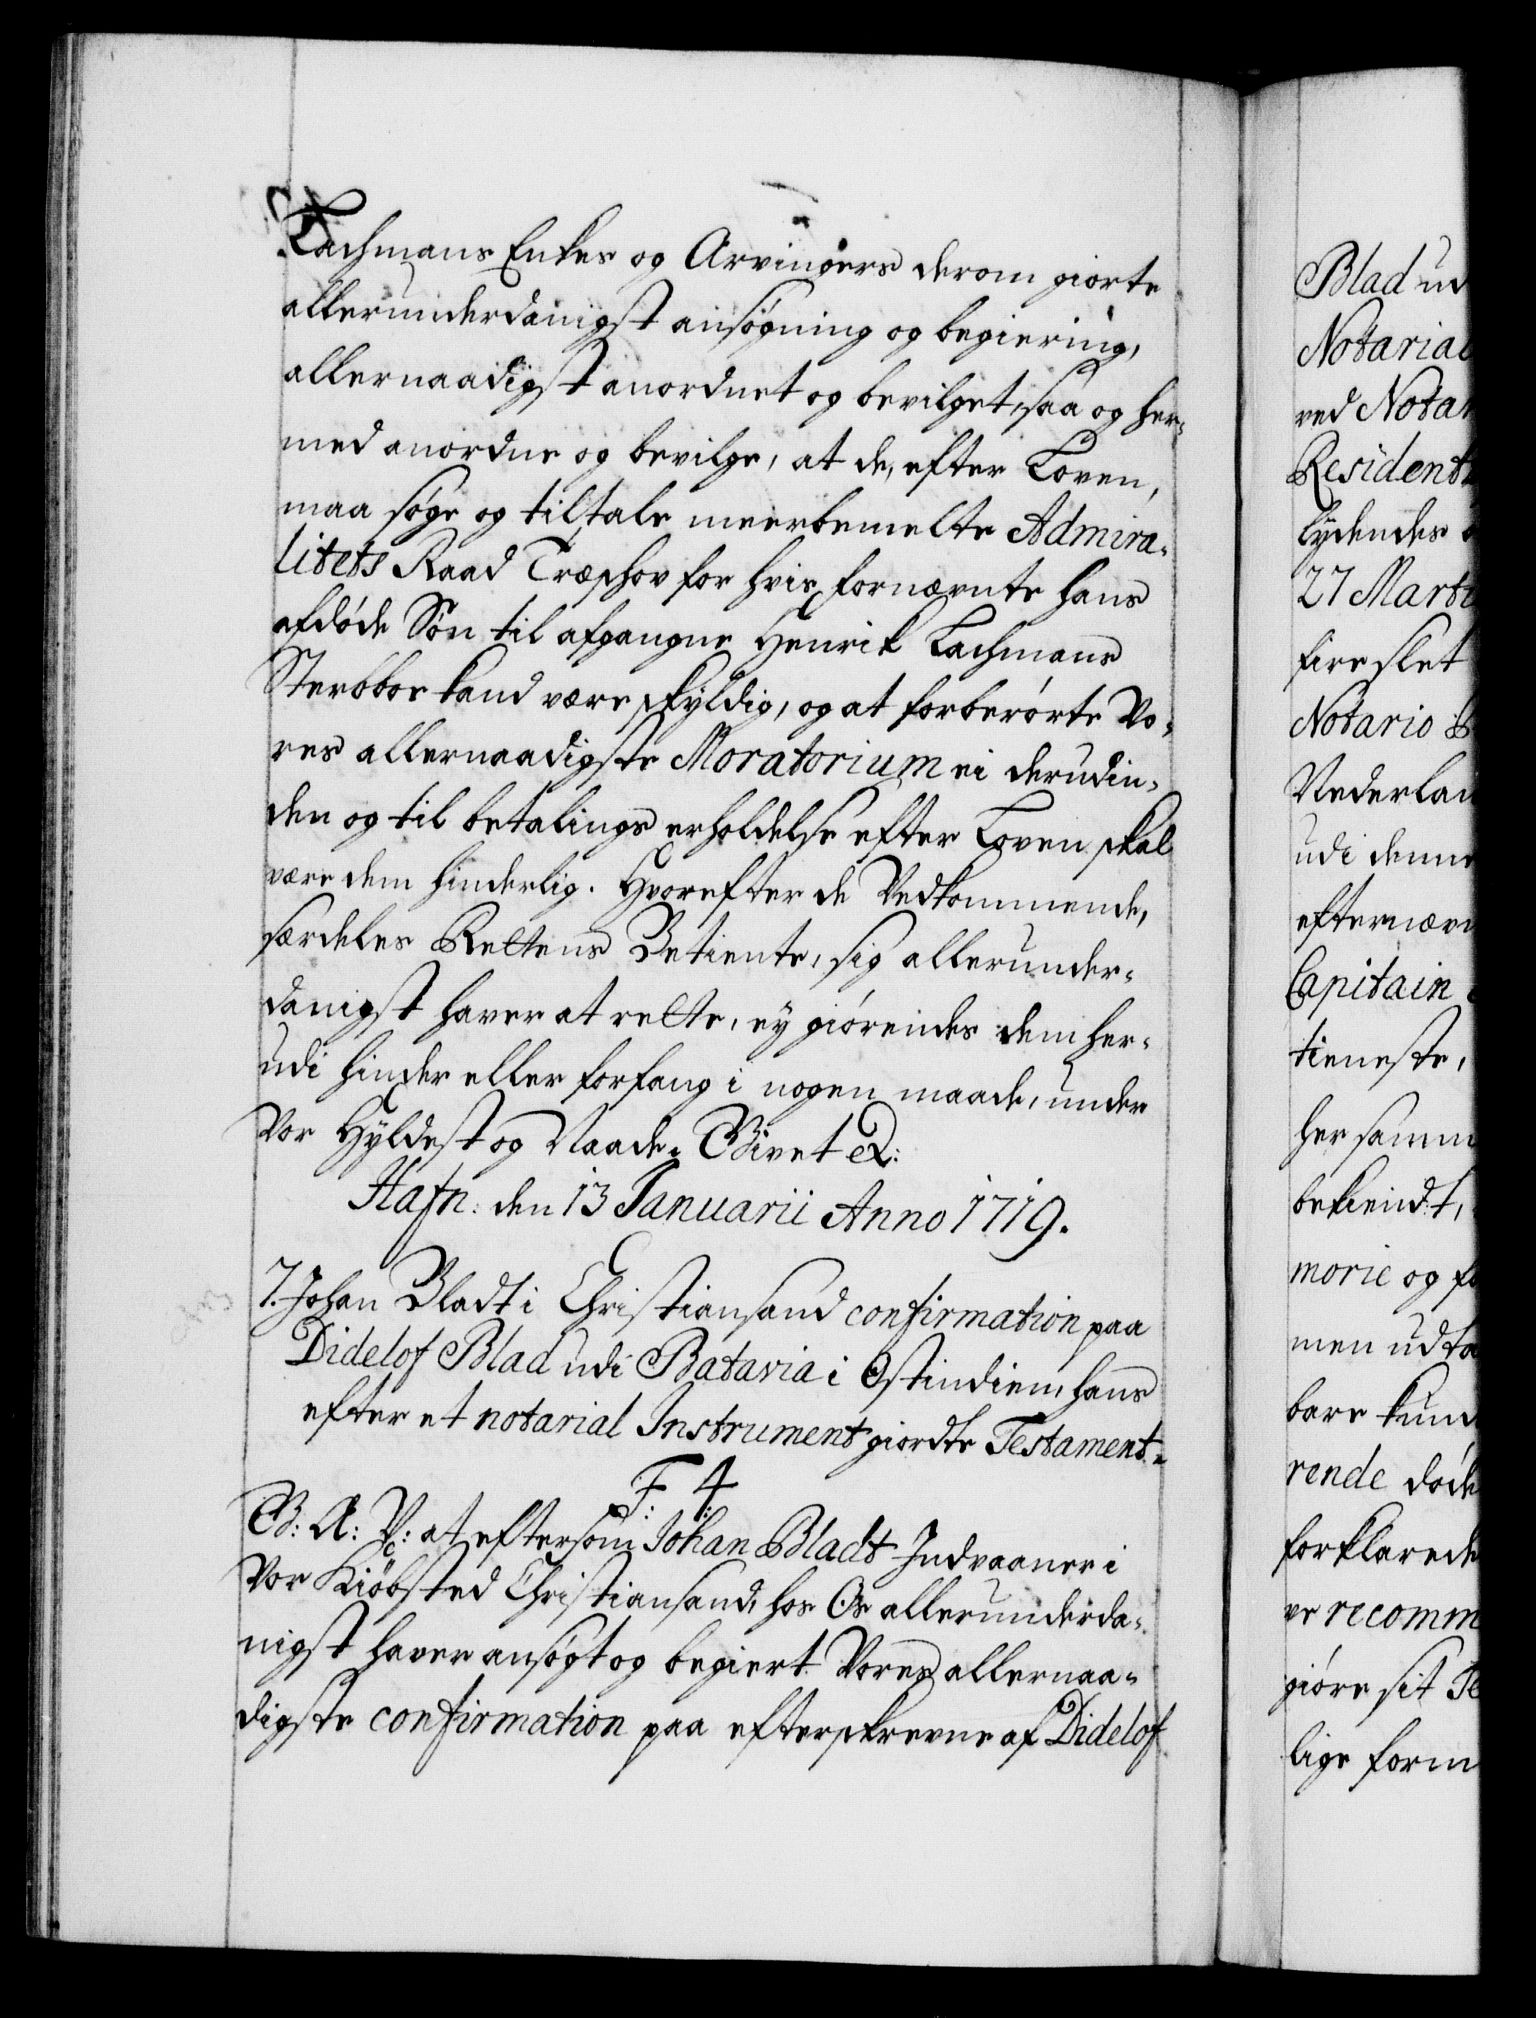 Lachmans Enkes og Arvingers derom giorte
allerunderdanigst ansøgning og begiering,
allernaadigst anordnet og bevilget, saa og her-
med anordne og bevilge, at de, efter Loven,
maa søge og tiltale meerbemelte Admira-
litets Raad Træschov for hvis fornævnte hans
afdøde Søn til afgangne Henrik Lachmans
Sterbboe kand være skyldig, og at forberørte Vo-
res allernaadigste Moratorium ei derudin-
den og til betalings erholdelse efter Loven skal
være dem hinderlig. Hvorefter de Vedkommende,
særdeles Rettens Betiente, sig allerunder-
danigst haver at rette, ey giørendes dem her-
udi hinder eller forfang i nogen maade, under
Vor Hyldest og Naade. Givet &:
Hafn: den 13 Januarii Anno 1719.
7. Johan Bladt i Christiansand confirmation paa
Didelof Blad udi Batavia i Ostindien, hans
efter et notarial Instrument giordte Testament.
F: 4:
G: A: V: at eftersom Johan Bladt Indvaaner i
Vor Kiøbsted Christiansand, hos Os allerunderda-
nigst haver ansøgt og begiert Vores allernaa-
digste confirmation paa efterskrevne af Didelof
Blad ud
Notarial
ved Notar
Resident
lydendes
27 Marti
fire slet
Notario
Nederlan
udi denne
efternævn
Capitain
tieneste,
her samm
bekiendt,
morie og fo
men udta
bare kund
rende døde
forklarede
ve recomm
giøre sit Te
lige form